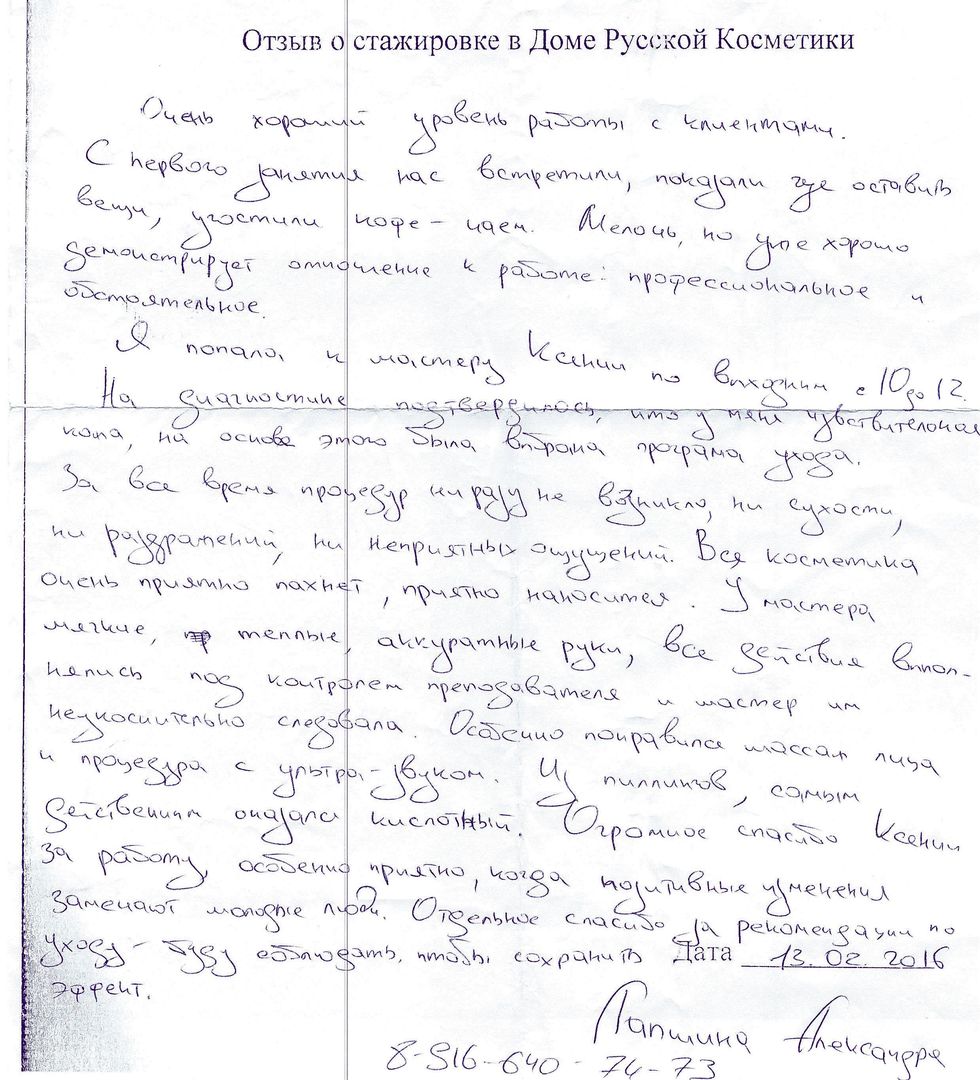 Отзыв о стажировке в Доме Русской Косметики
Очень хороший уровень работы с клиентами.
С первого занятия нас встретили, показали где оставить
вещи, угостили кофе-чаем. Мелочь, но уже хорошо
демонстрирует отношение к работе: профессиональное и
обстоятельное.
Я попала к мастеру Ксении по выходным, с 10 до 12.
На диагностике подтвердилось, что у меня чувствительная
кожа, на основе этого была выбрана програма ухода.
За все время процедур ни разу не возникло, ни сухости,
ни раздражений, ни неприятных ощущений. Вся косметика
очень приятно пахнет, приятно наносится. У мастера
мягкие, теплые, аккуратные руки, все действия выпол-
нялись под контролем преподавателя и мастер им
неукоснительно следовала. Особенно понравился массаж лица
и процедура с ультра-звуком. Из пиллингов, самым
действенным оказался кислотный. Огромное спасибо Ксении
за работу, особенно приятно, когда позитивные изменения
замечают молодые люди. Отдельное спасибо за рекомендации по
уходу - буду соблюдать, чтобы сохранить Дата 13.02.2016
эффект.
Лапшина Александра
8-916-640-74-73